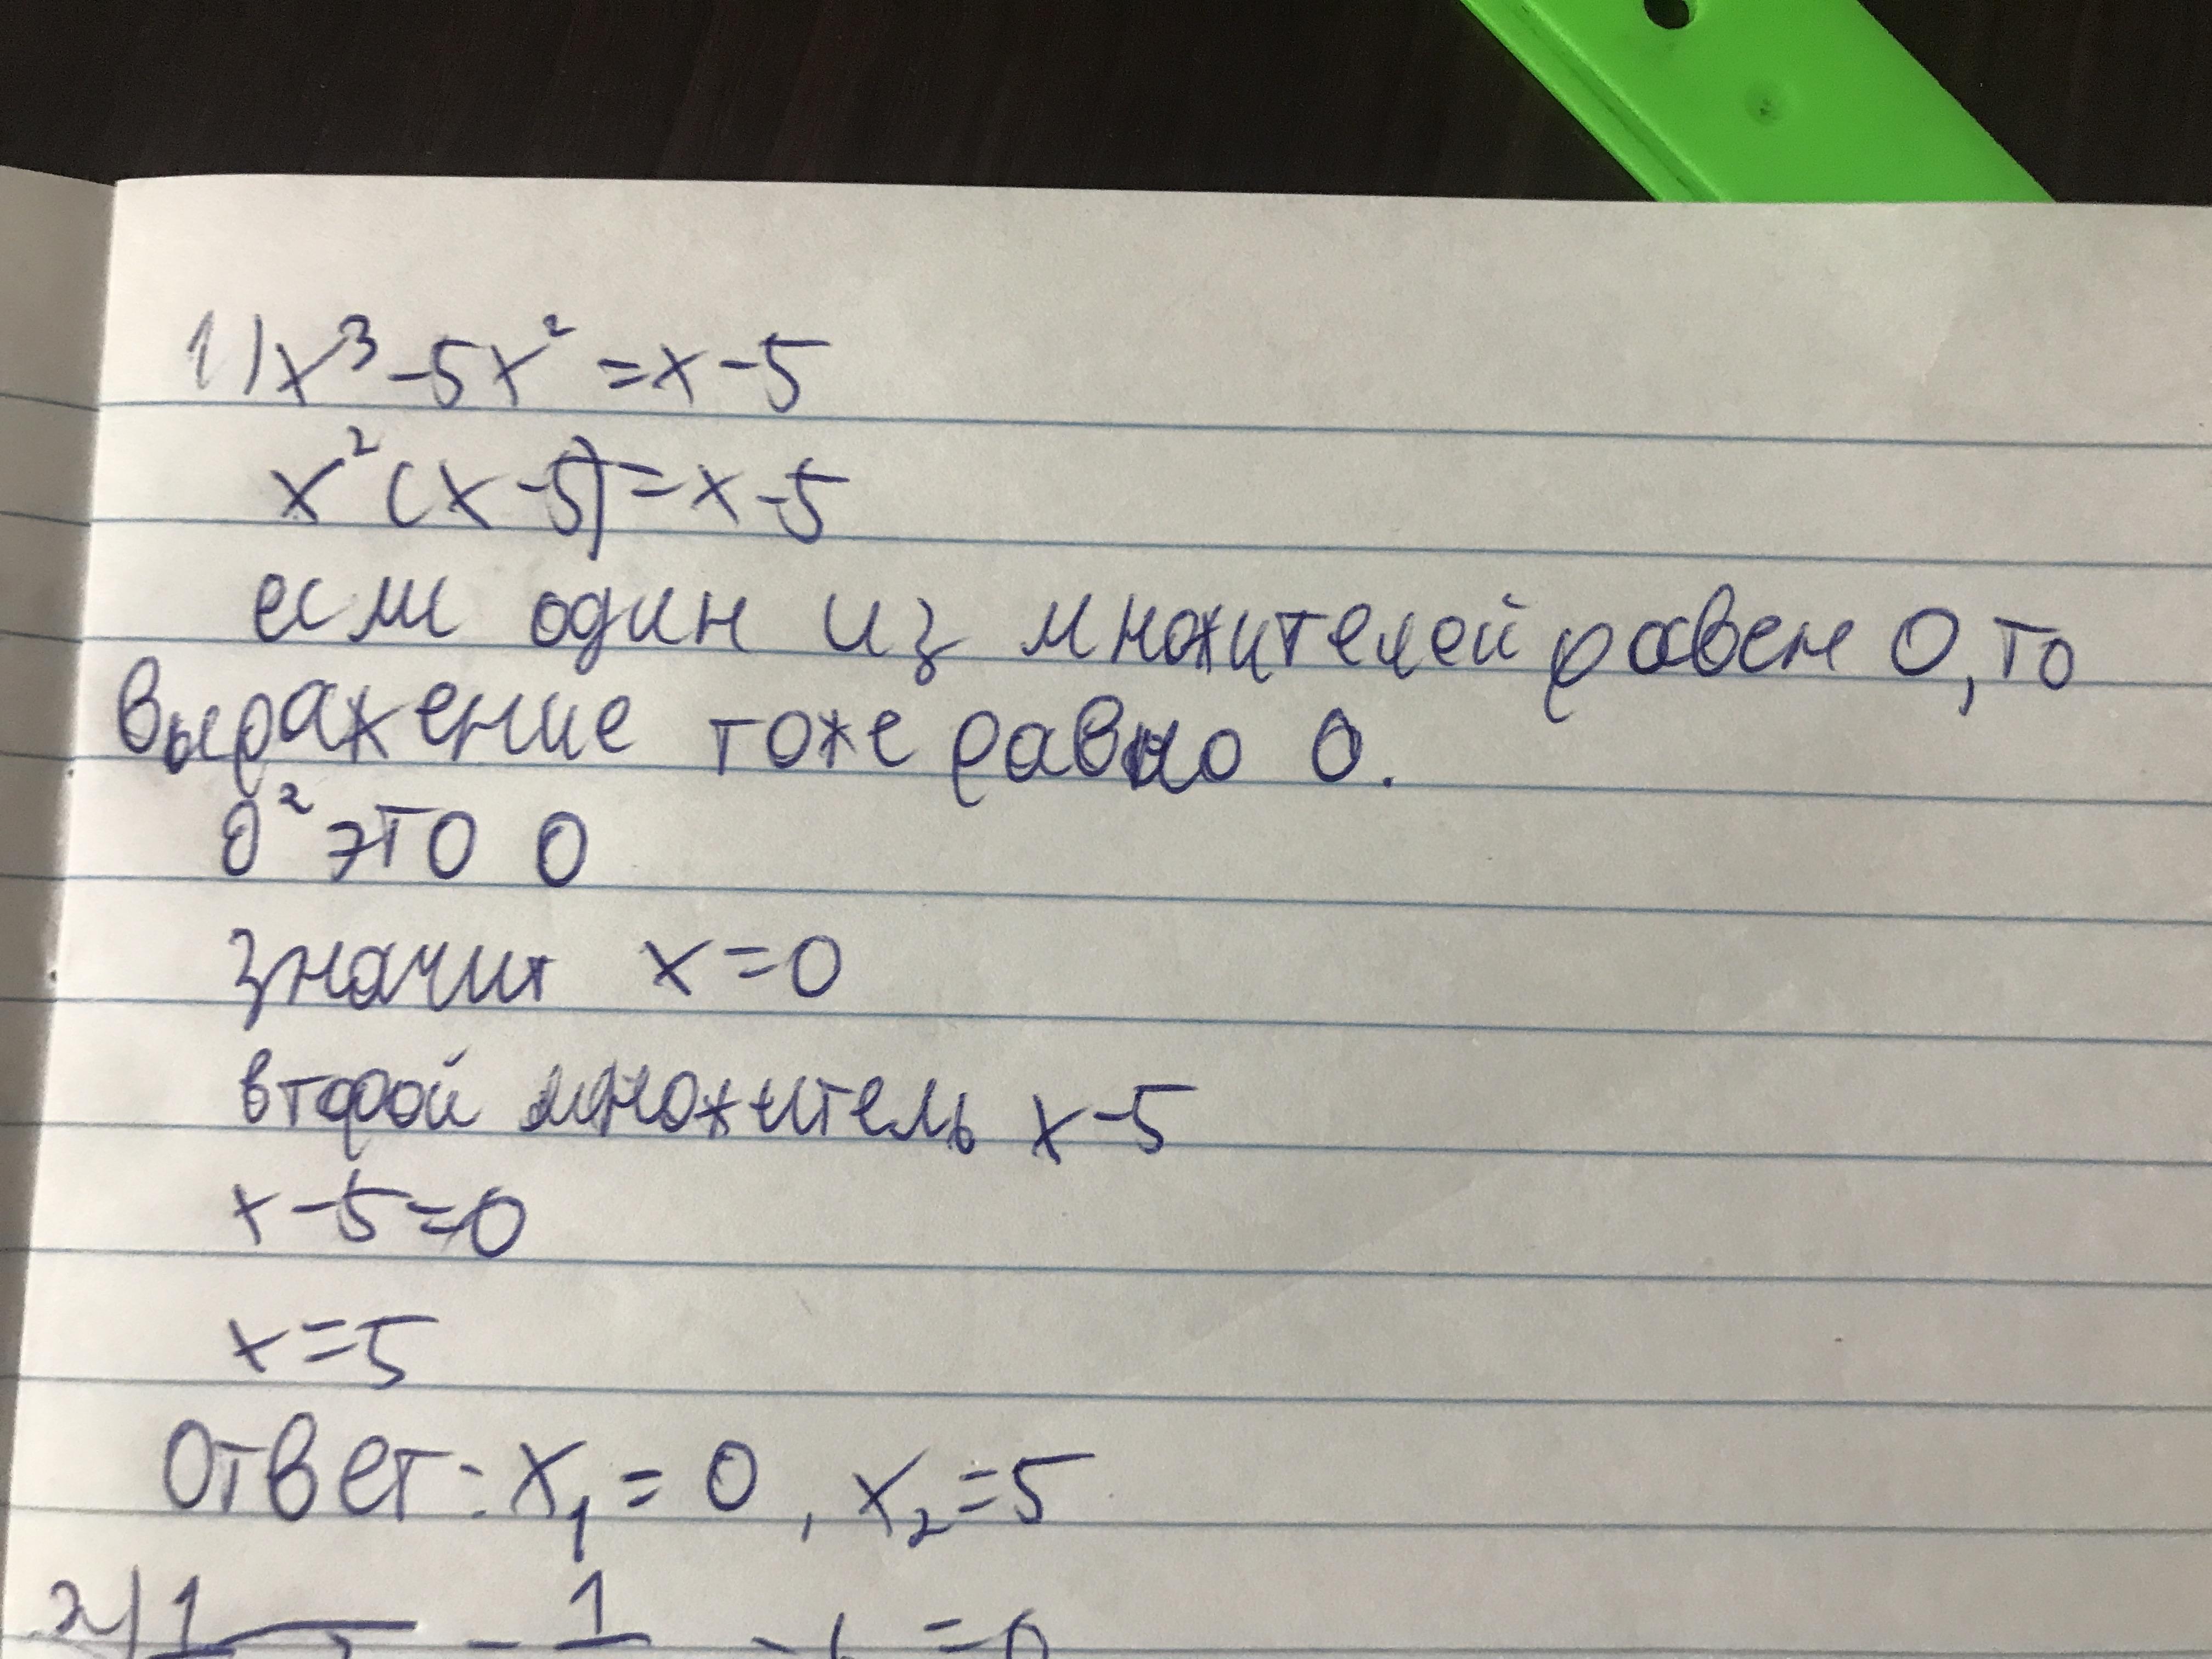 1) x³ - 5x² = x - 5
x² (x - 5) = x - 5
если один из множителей равен 0, то
выражение тоже равно 0.
0² это 0
значит x = 0
второй множитель x - 5
x - 5 = 0
x = 5
Ответ: x₁ = 0, x₂ = 5
2) 1 - 1 - = 0